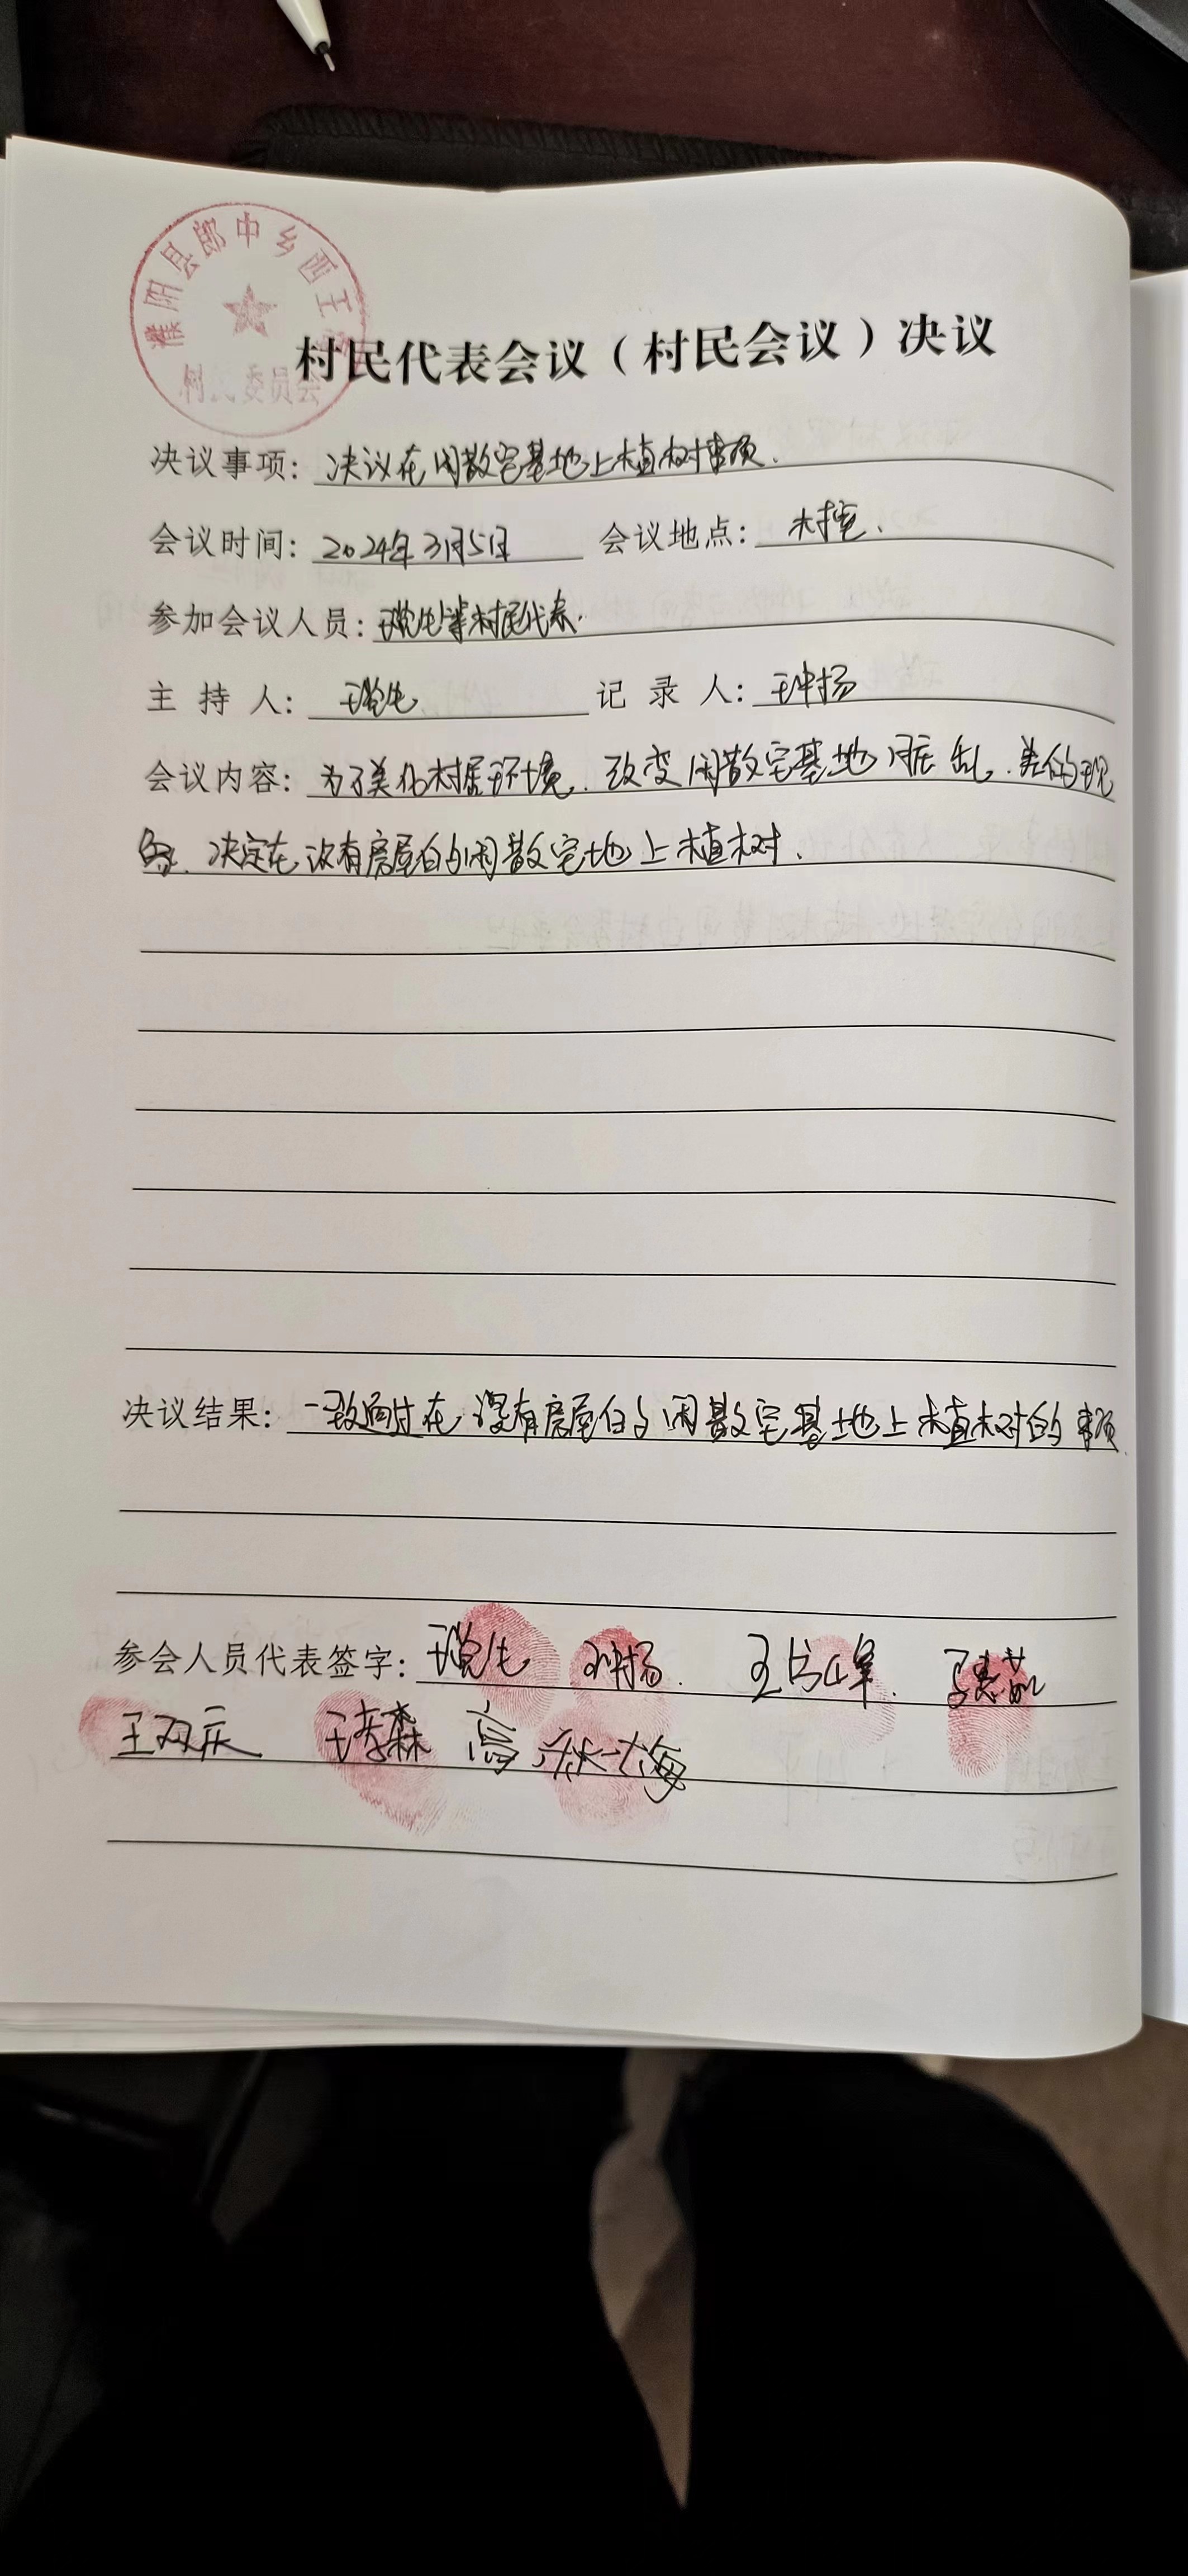 濮阳县郎中乡西王
村民委员会
村民代表会议（村民会议）决议
决议事项：决议在闲散宅基地上植树事项.
会议时间：2024年3月5日 会议地点：村室.
参加会议人员：等村民代表.
主 持 人： 记 录 人：
会议内容：为了美化村居环境.改变闲散宅基地脏乱.差的现
象.决定在没有房屋的闲散宅地上植树.
决议结果：一致通过在没有房屋的闲散宅基地上植树的事项.
参会人员代表签字：
王双庆 王李森